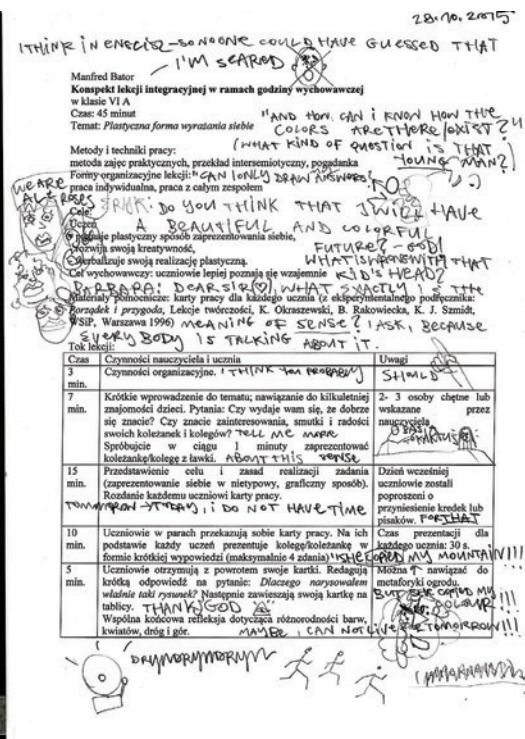 28.10.2015
I THINK IN ENGLISZ - SO NO ONE COULD HAVE GUESSED THAT
- I'M SCARED
Manfred Bator
Konspekt lekcji integracyjnej w ramach godziny wychowawczej
w klasie VI A
Czas: 45 minut
"AND HOW CAN I KNOW HOW THE
Temat: Plastyczna forma wyrażania siebie
COLORS ARE THERE/EXIST?"
(WHAT KIND OF QUESTION IS THAT
Metody i techniki pracy:
YOUNG MAN?)
metoda zajęć praktycznych, przekład intersemiotyczny, pogadanka
Formy organizacyjne lekcji: "CAN I ONLY DRAW ANSWERS?
WE ARE
praca indywidualna, praca z całym zespołem
ALL ROSES
Cele: ERYK: DO YOU THINK THAT I WILL HAVE
Uczeń A BEAUTIFUL AND COLORFUL
poznaje plastyczny sposób zaprezentowania siebie,
FUTURE? - GOD!
rozwija swoją kreatywność,
WHAT IS WRONG WITH THAT
werbalizuje swoją realizację plastyczną.
KID'S HEAD?
Cel wychowawczy: uczniowie lepiej poznają się wzajemnie
BARBARA: DEAR SIR, WHAT EXACTLY IS THE
Materiały pomocnicze: karty pracy dla każdego ucznia (z eksperymentalnego podręcznika:
Porządek i przygoda, Lekcje twórczości, K. Okraszewski, B. Rakowiecka, K. J. Szmidt,
WSiP, Warszawa 1996) MEANING OF SENSE? I ASK, BECAUSE
EVERYBODY IS TALKING ABOUT IT.
Tok lekcji:
Czas Czynności nauczyciela i ucznia Uwagi
3 min. Czynności organizacyjne. I THINK YOU PROBABLY SHOULD
7 min. Krótkie wprowadzenie do tematu; nawiązanie do kilkuletniej
znajomości dzieci. Pytania: Czy wydaje wam się, że dobrze
się znacie? Czy znacie zainteresowania, smutki i radości
swoich koleżanek i kolegów? TELL ME MORE
Spróbujcie w ciągu 1 minuty zaprezentować
koleżankę/kolegę z ławki. ABOUT THIS SENSE
2- 3 osoby chętne lub
wskazane przez
nauczyciela
15 min. Przedstawienie celu i zasad realizacji zadania
(zaprezentowanie siebie w nietypowy, graficzny sposób).
Rozdanie każdemu uczniowi karty pracy.
TOMORROW → TODAY, I DO NOT HAVE TIME
Dzień wcześniej
uczniowie zostali
poproszeni o
przyniesienie kredek lub
pisaków. FOR THAT
10 min. Uczniowie w parach przekazują sobie karty pracy. Na ich
podstawie każdy uczeń prezentuje kolegę/koleżankę w
formie krótkiej wypowiedzi (maksymalnie 4 zdania)
Czas prezentacji dla
każdego ucznia: 30 s.
SHE COPIED MY MOUNTAIN!!!
5 min. Uczniowie otrzymują z powrotem swoje kartki. Redagują
krótką odpowiedź na pytanie: Dlaczego narysowałem
właśnie taki rysunek? Następnie zawieszają swoją kartkę na
tablicy. THANK GOD
Wspólna końcowa refleksja dotycząca różnorodności barw,
kwiatów, dróg i gór.
Można nawiązać do
metaforyki ogrodu.
BUT SHE COPIED MY
COLOUR!!!
MAYBE I CAN NOT LIVE FOR TOMORROW!!!
DRYNDRYNDRYN